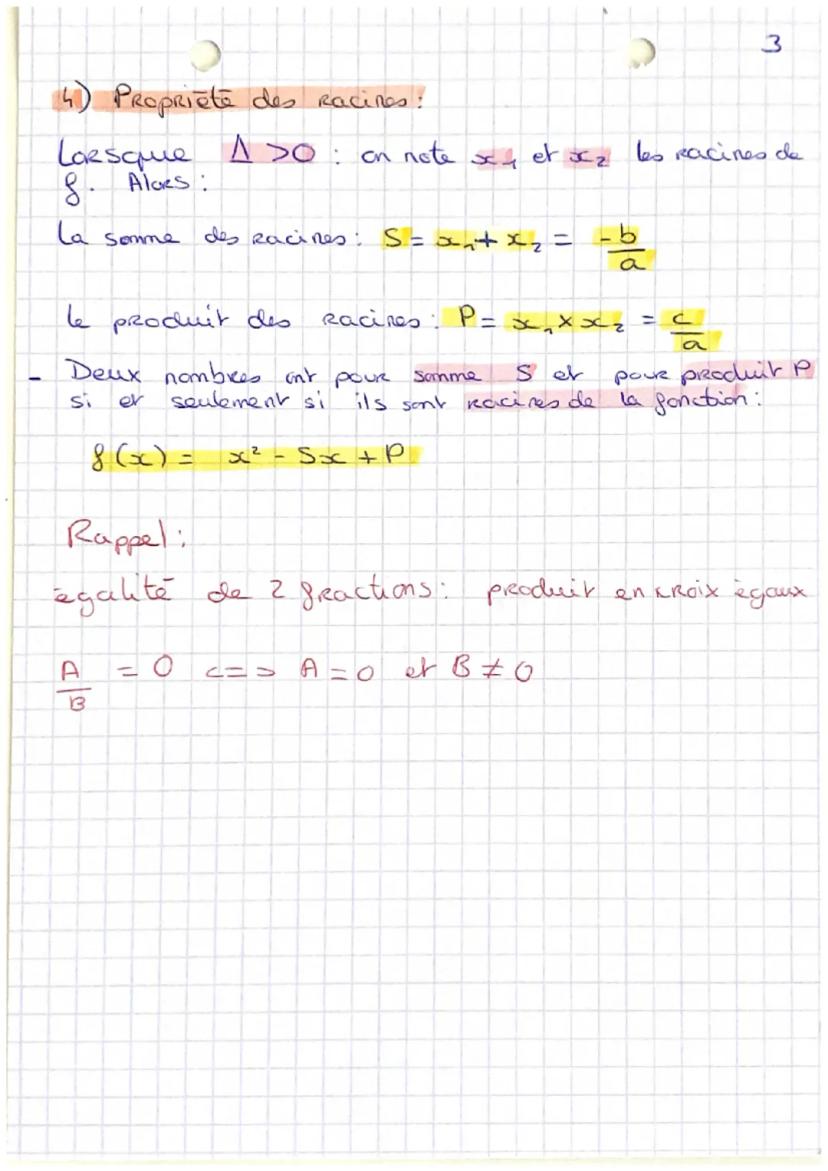 3
4) Propriété des racines :
Lorsque Δ >0 : on note x₁ et x₂ les racines de
f. Alors :
La somme des racines : S = x₁ + x₂ = -b/a
le produit des racines : P = x₁ × x₂ = c/a
- Deux nombres ont pour somme S et pour produit P
si et seulement si ils sont racines de la fonction :
f(x) = x² - Sx + P
Rappel :
égalité de 2 fractions : produit en croix égaux
A/B = 0 <=> A = 0 et B ≠ 0